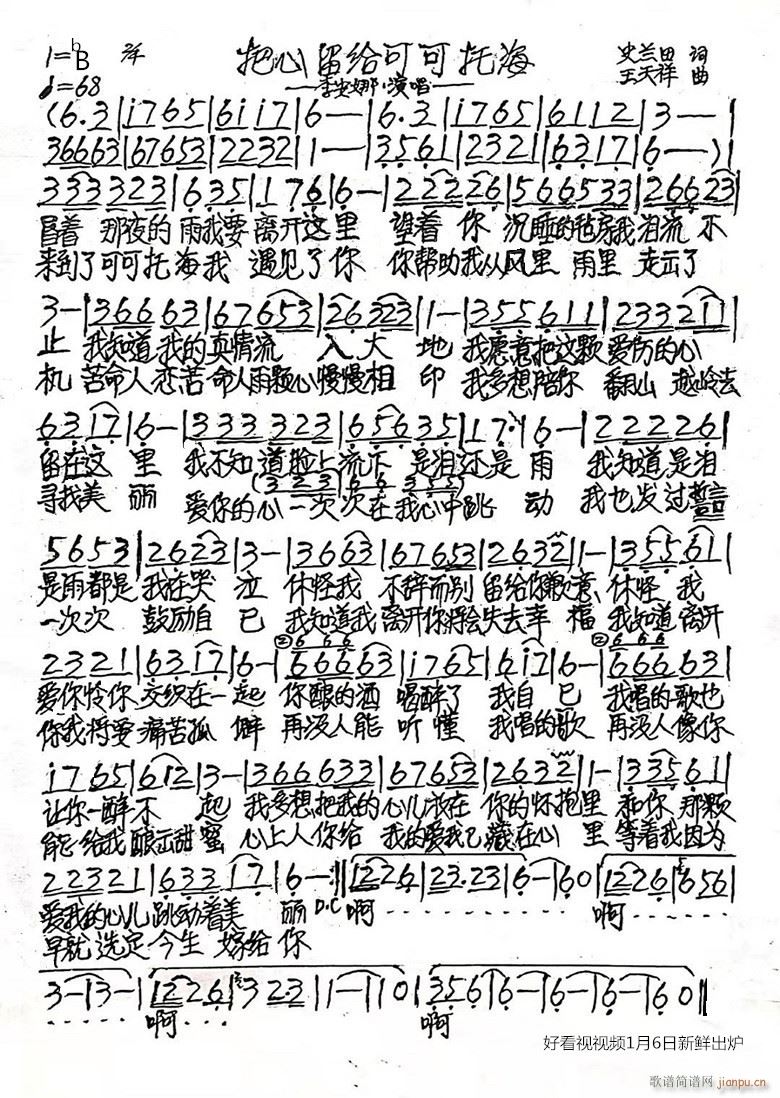 1=♭B 2/4 把心留给可可托海 史兰田 词
♩=68 ——李安娜·演唱—— 王天祥 曲
(6.3|i765|6i17|6—|6.3|i765|6112|3——|
36663|67653|2232|1—|3561|2321|6317|6——)|
333323|635|176|6—|22226|566533|26623|
冒着 那夜的 雨我要 离开这里 望着 你 沉睡的毡房我泪流 不
来到了可可托海我 遇见了你 你帮助我从风里 雨里 走出了
3—|36663|67653|26323|1—|355611|233211|
止 我知道 我的真情流 入大 地 我愿意把这颗 爱伤的心
机 苦命人恋苦命人两颗心慢慢相 印 我多想陪你 翻山 越岭去
6317|6—|333323|65635|17·|6—|22226|
留在这 里 我不知道脸上流下 是泪还是雨 我知道是泪
寻找美 丽 爱你的心一次次在我心中跳 动 我也发过誓言
5653|2623|3—|3663|67653|2632|1—|35561|
是雨都是 我在哭 泣 休怪我 不辞而别 留给你歉意 休怪 我
一次次 鼓励自 己 我知道我离开你将会失去幸 福 我知道离开
2321|6317|6—|66663|i765|6i7|6—|66663|
爱你恨你 交织在一起 你酿的酒 喝醉了 我自 己 我唱的歌也
你我将受痛苦孤 僻 再没人能 听懂 我唱的歌 再没人像你
i765|612|3—|366633|67653|2632|1—|33561|
让你一醉不 起 我多想把我的心儿放在 你的怀抱里 和你 那颗
能给我酿出甜蜜 心上人你给 我的爱我已藏在心 里 等着我因为
22321|63317|6—:||1226|23.23|6—|60|1226|656|
爱我的心儿跳动着美 丽 D.C 啊 . . . . . . . . . . 啊 . . . . .
早就选定今生 嫁给你
3—|3—|1226|3 2.3|1—|10|356|6—|6—|6—|60||
. . . . . . 啊 . . . 啊
好看视视频1月6日新鲜出炉
歌谱简谱网
jianpu.cn